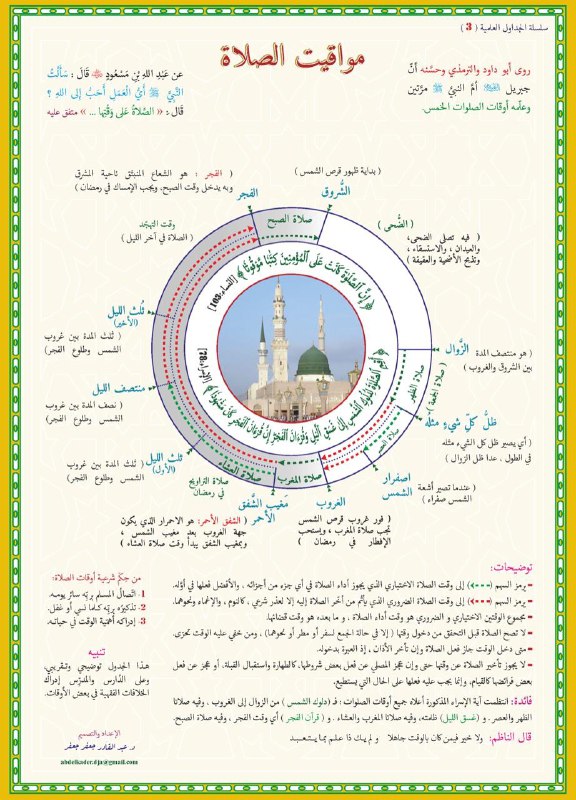 سلسلة الجداول العلمية ( 3 )
مواقيت الصلاة
روى أبو داود والترمذي وحسَّنه أنَّ
جبريل ﷺ أمَّ النبيَّ ﷺ مرَّتين
وعلّمه أوقات الصلوات الخمس.
عن عَبْدِ اللهِ بْنِ مَسْعُودٍ ﷺ قَالَ : سَأَلْتُ
النَّبِيَّ ﷺ أَيُّ الْعَمَلِ أَحَبُّ إِلَى اللهِ ؟
قَالَ : « الصَّلاَةُ عَلَى وَقْتِهَا ... » متفق عليه
( بداية ظهور قرص الشمس )
الشُّروق
( الفجر : هو الشعاع المنبثق ناحية المشرق
وبه يدخل وقت الصبح، ويجب الإمساك في رمضان )
الفجر
صلاة الصبح
( الضُّحى )
( فيه تصلى الضحى،
والعيدان ، والاستسقاء ،
وتذبح الأضحية والعقيقة )
وقت التهجّد
( الصلاة في آخر الليل )
﴿ إِنَّ الصَّلَوٰةَ كَانَتْ عَلَى الْمُؤْمِنِينَ كِتَٰبًا مَّوْقُوتًا ﴾ [النساء:103]
﴿ أَقِمِ الصَّلَوٰةَ لِدُلُوكِ الشَّمْسِ إِلَىٰ غَسَقِ الَّيْلِ وَقُرْءَانَ الْفَجْرِ إِنَّ قُرْءَانَ الْفَجْرِ كَانَ مَشْهُودًا ﴾ [الإسراء:78]
ثلث الليل
(الأخير)
( ثلث المدة بين غروب
الشمس وطلوع الفجر )
الزَّوال
( هو منتصف المدة
بين الشروق والغروب )
صلاة الظهر
( صلاة الجمعة )
منتصف الليل
( نصف المدة بين غروب
الشمس وطلوع الفجر )
ظلُّ كلِّ شيءٍ مثلُه
( أي يصير ظل كل الشيء مثله
في الطول ، عدا ظل الزوال )
صلاة العصر
ثلث الليل
(الأول)
( ثلث المدة بين غروب
الشمس وطلوع الفجر )
اصفرار
الشمس
( عندما تصير أشعة
الشمس صفراء )
صلاة المغرب
صلاة العشاء
صلاة التراويح
في رمضان
الغروب
( فور غروب قرص الشمس
تجب صلاة المغرب ، ويستحب
الإفطار في رمضان )
مَغيب الشَّفق
الأحمر
( الشفق الأحمر: هو الاحمرار الذي يكون
جهة الغروب بعد مغيب الشمس ،
وبمغيب الشفق يبدأ وقت صلاة العشاء )
توضيحات:
– يرمز السهم ( ) إلى وقت الصلاة الاختياري الذي يجوز أداء الصلاة في أي جزء من أجزائه ، والأفضل فعلها في أوّله.
– يرمز السهم ( ) إلى وقت الصلاة الضروري الذي يأثم من أخّر الصلاة إليه إلا لعذر شرعي ، كالنوم ، والإغماء ونحوهما.
– مجموع الوقتين الاختياري و الضروري هو وقت أداء الصلاة ، و ما بعده هو وقت قضائها.
– لا تصح الصلاة قبل التحقق من دخول وقتها ( إلا في حالة الجمع لسفر أو مطر أو نحوهما) ، ومن خفي عليه الوقت تحرّى.
– متى دخل الوقت جاز فعل الصلاة وإن تأخر الأذان ، إذ العبرة بدخوله.
– لا يجوز تأخير الصلاة عن وقتها حتى وإن عجز المصلي عن فعل بعض شروطها، كالطهارة واستقبال القبلة، أو عجز عن فعل
بعض فرائضها كالقيام، وإنما يجب عليه فعلها على الحال التي يستطيع.
فائدة: انتظمت آية الإسراء المذكورة أعلاه جميع أوقات الصلوات : فـ (دلوك الشمس ) من الزوال إلى الغروب ، وفيه صلاتا
الظهر والعصر. و (غسق الليل) ظلمته، وفيه صلاتا المغرب والعشاء . و ( قرآن الفجر ) أي وقت الفجر ، وفيه صلاة الصبح.
قال الناظم: ولا خير فيمن كان بالوقت جاهلا ولم يك ذا علم بما يتعبد
من حِكَم شرعية أوقات الصلاة:
1- اتصالُ المسلم بربِّه سائر يومه.
2- تذكيرُه بربِّه كلما نسي أو غفل.
3- إدراكه أهمّية الوقت في حياته.
تنبيه
هذا الجدول توضيحي وتقريبي،
وعلى الدَّارس والمدرِّس إدراك
الخلافات الفقهية في بعض الأوقات.
الإعداد والتصميم
د. عبد القادر جعفر جعفر
abdelkader.dja@gmail.com